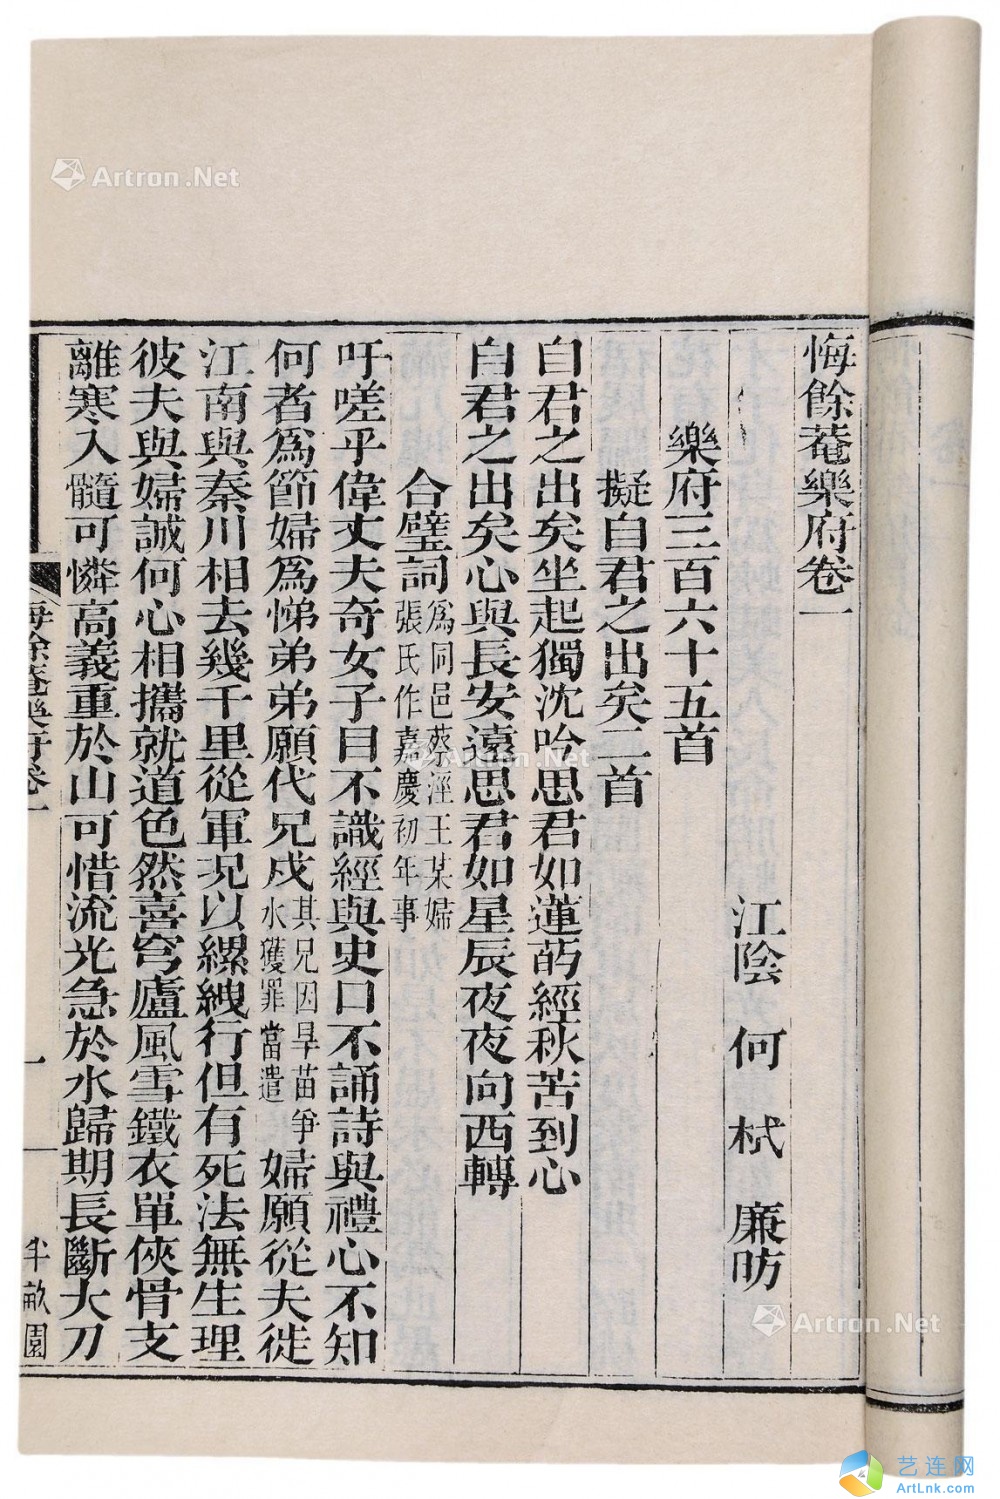 悔餘菴樂府卷一
江陰 何 栻 廉昉
樂府三百六十五首
擬自君之出矣二首
自君之出矣坐起獨沈吟思君如蓮菂經秋苦到心
自君之出矣心與長安遠思君如星辰夜夜向西轉
合璧詞為同邑蔡涇王某婦張氏作嘉慶初年事
吁嗟乎偉丈夫奇女子目不識經與史口不誦詩與禮心不知
何者為節婦為悌弟弟願代兄戍其兄因旱苗爭水獲罪當遣婦願從夫徙
江南與秦川相去幾千里從軍况以縲絏行但有死法無生理
彼夫與婦誠何心相攜就道色然喜穹廬風雪鐵衣單俠骨支
離寒入髓可憐高義重於山可惜流光急於水歸期長斷大刀
悔餘菴樂府卷一
一
半畝園
Artron.Net
Artron.Net
Artron.Net
艺连网
ArtLnk.com